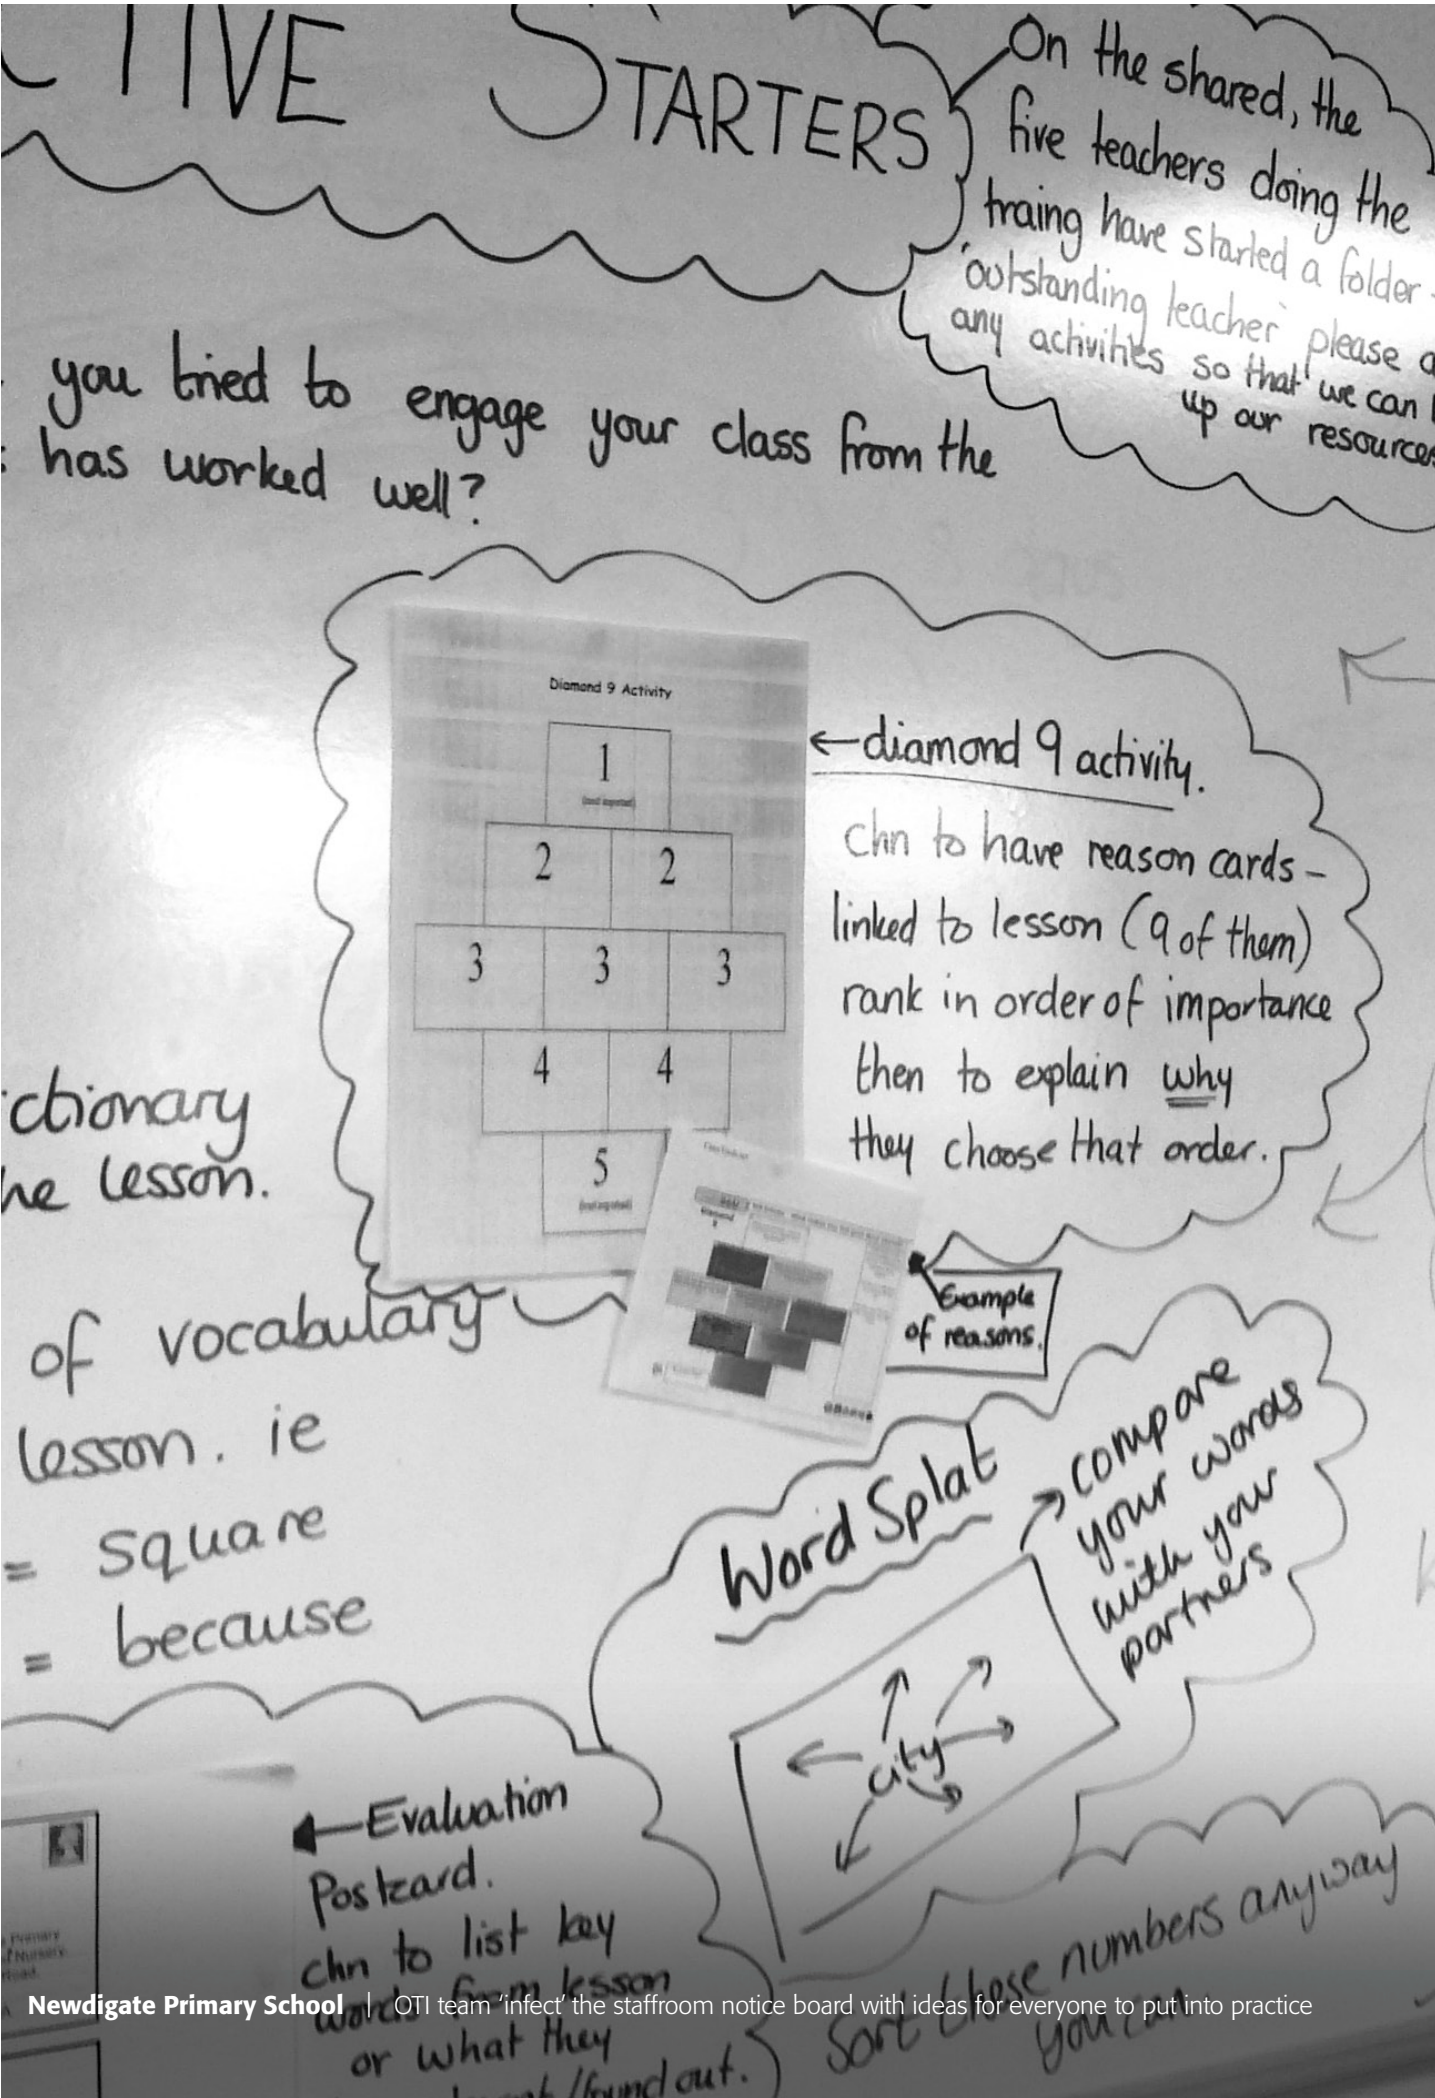 CTIVE STARTERS
On the shared, the
five teachers doing the
traing have started a folder -
'outstanding teacher' please a
any activities so that we can
up our resources
you tried to engage your class from the
has worked well?
Diamond 9 Activity
1
2 2
3 3 3
4 4
5
←diamond 9 activity.
Chn to have reason cards –
linked to lesson (9 of them)
rank in order of importance
then to explain why
they choose that order.
Example
of reasons.
ctionary
he lesson.
of vocabulary
lesson. ie
= square
= because
Word Splat
→ compare
your words
with your
partners
city
←Evaluation
Postcard.
chn to list key
words from lesson
or what they
/found out.
Primary
Sort these numbers anyway
you can
Newdigate Primary School | OTI team ‘infect’ the staffroom notice board with ideas for everyone to put into practice